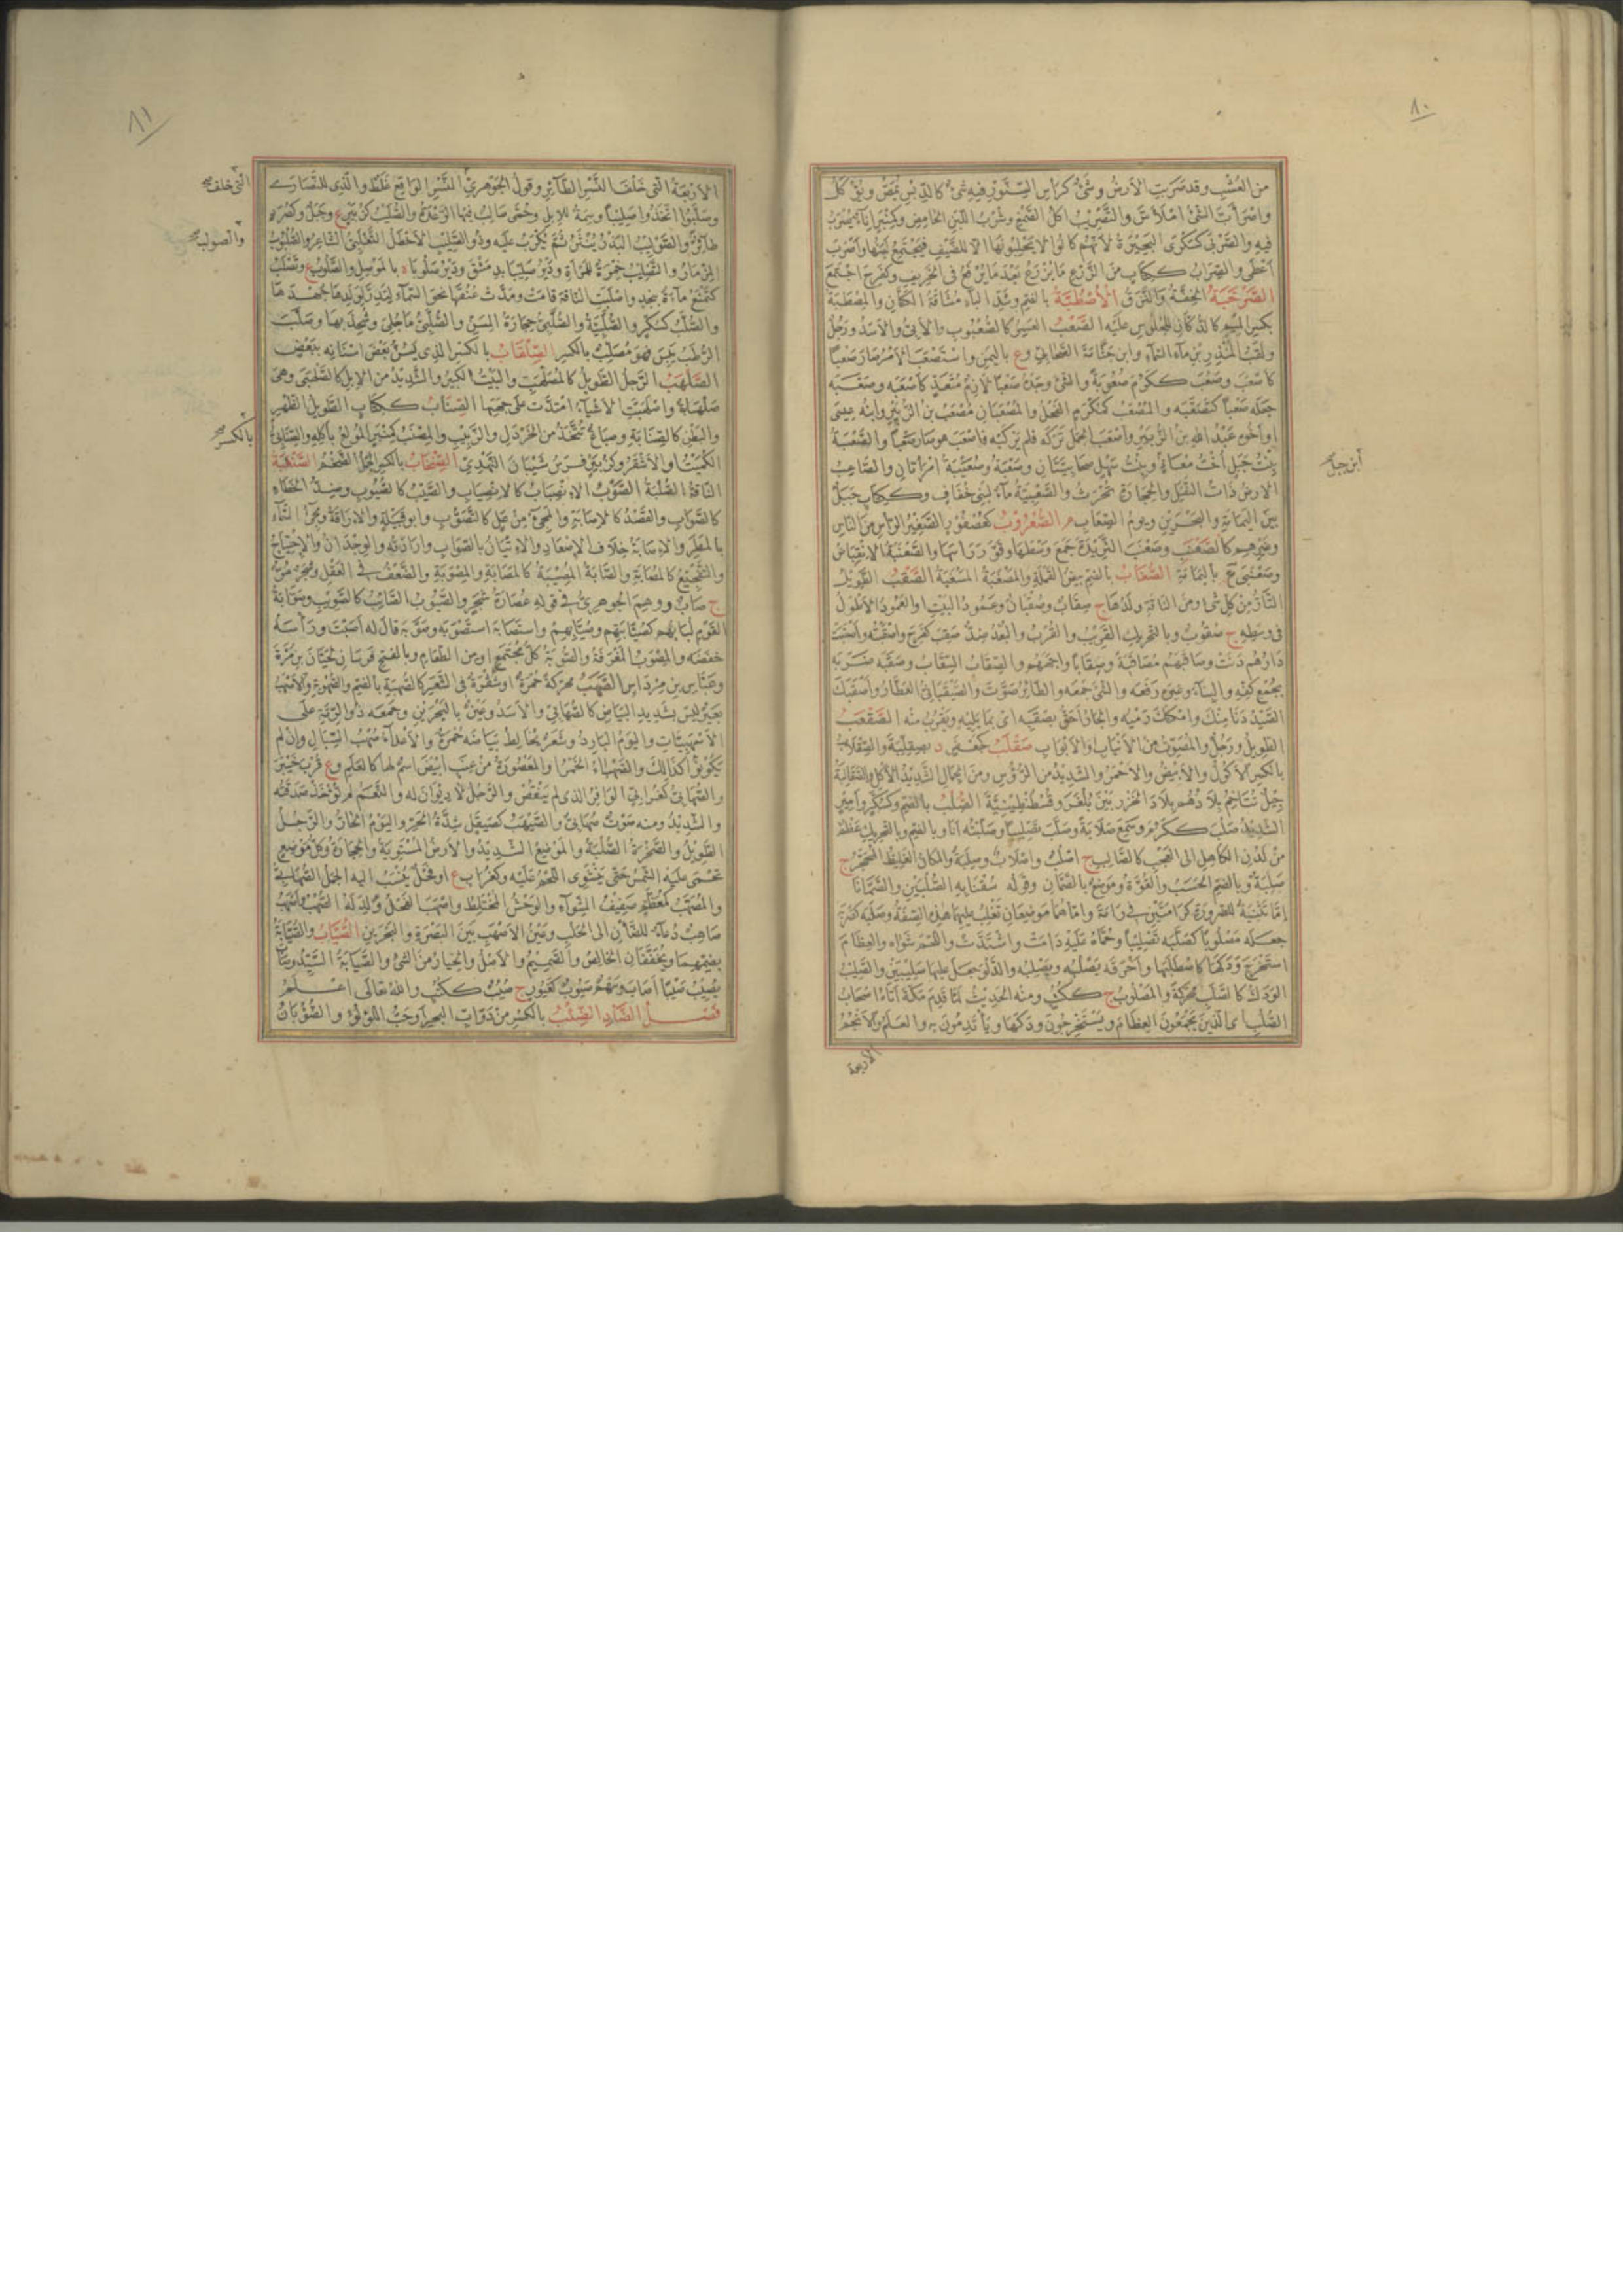 ٨٠
من العُشْبِ وقد صَرَبَتِ الأرضُ وشَىْءٌ كرأسِ السِّنَّوْرِ فيه شىءٌ كالدِّبْسِ يُمَصُّ ويُؤْكَلُ
واصْرَأَبَّ الشىءُ امْلَأَسَّ والتَّصْرِيبُ اكلُ الصَّمْغِ وشُرْبُ اللَّبَنِ الحامِضِ وكمِنْبَرٍ إناءٌ يُصْرَبُ
فيه والصَّرْبَى كسَكْرَى البَحِيرَةُ لأنّهم كانوا لا يَحْلِبُونَها الا للضَّيْفِ فيَجْتَمِعُ لَبَنُها وأَصْرَبَ
أعْطَى والصِّرابُ ككِتابٍ من الزَّرْعِ ما يُزْرَعُ بَعْدَ ما يُرْفَعُ فى الخَرِيفِ وكفَرِحَ اجْتَمَعَ
الصَّرْخَبَةُ الخِفَّةُ والنَّزَقُ الأُصْطُبَّةُ بالضم وشَدِّ الباءِ مُشاقَةُ الكَتَّانِ والمِصْطَبَّةُ
بكسر الميم كالدُّكَّانِ للجُلُوسِ عليه الصَّعْبُ العَسِرُ كالصُّعْبُوبِ والأبِىُّ والأَسَدُ ورَجُلٌ
ولَقَبُ المُنْذِرِ بنِ ماءِ السَّماءِ وابنُ جَثَّامَةَ الصَّحابِىُّ وع باليَمَنِ واسْتَصْعَبَ الأمْرُ صارَ صَعْباً
كأصْعَبَ وصَعُبَ ككَرُمَ صُعُوبَةً والشىءَ وجَدَهُ صَعْباً لازِمٌ مُتَعَدٍّ كأصْعَبَه وصَعَّبَه
جَعَلَه صَعْباً كتَصَعَّبَه والمُصْعَبُ كمُكْرَمٍ الفَحْلُ والمُصْعَبانِ مُصْعَبُ بنُ الزُّبَيْرِ وابنُه عِيسَى
او أخُوه عَبْدُ اللهِ بنُ الزُّبَيْرِ وأصْعَبَ الجَمَلَ تَرَكَه فلم يَرْكَبْه فأصْعَبَ هو صارَ صَعْباً والصَّعْبَةُ
بِنْتُ جَبَلٍ أُخْتُ مُعاذٍ وبِنْتُ سَهْلٍ صَحابِيَّتانِ وصَعْبَةُ وصُعَيْبَةُ امْرَأتانِ والصَّاعِبُ
ابن جبل صح
الأرضُ ذاتُ النَّقَلِ والحِجارَةِ تُحْرَثُ والصَّعْبِيَّةُ ماءٌ لِبَنِى خُفافٍ وككِتابٍ جَبَلٌ
بَيْنَ اليَمامَةِ والبَحْرَيْنِ ويَوْمُ الصِّعابِ م الصُّعْرُوبُ كعُصْفُورٍ الصَّغِيرُ الرأسِ من الناسِ
وغَيْرِهِم كالصَّعْنَبِ وصَعْنَبَ الثَّرِيدَةَ جَمَعَ وَسْطَها وقَوَّرَ رَأْسَها والصَّعْنَبَةُ الانْقِباضُ
وصَعْنَبَى ع باليَمامَةِ الصُّغابُ بالضم بَيْضُ القَمْلَةِ والمَصْغَبَةُ المَسْغَبَةُ الصَّقْبُ الطَّوِيلُ
التَّارُّ من كلِّ شىءٍ ومن الناقَةِ ولَدُها ج صِقابٌ وصُقْبانٌ وعَمُودُ البَيْتِ او العَمُودُ الأطْوَلُ
فى وسَطِهِ ج صُقُوبٌ وبالتحريك القَرِيبُ والقُرْبُ والبُعْدُ ضِدٌّ صَقِبَ كفَرِحَ وأصْقَبْتُه وأصْقَبَتْ
دارُهُم دَنَتْ وصاقَبَهُم مُصاقَبَةً وصِقاباً واجَهَهُم والصِّقابُ السِّقابُ وصَقَبَه ضَرَبَه
بجُمْعِ كَفِّهِ والبِناءَ وغيره رَفَعَه والشىءَ جَمَعَه والطائِرُ صَوَّتَ والصَّيْقَبانِىُّ العَطَّارُ وأصْقَبَكَ
الصَّيْدُ دَنا منكَ وأمْكَنَكَ رَمْيُه والجارُ أحَقُّ بصَقَبِه اى بما يَلِيهِ ويَقْرُبُ منه الصَّقْعَبُ
الطَّوِيلُ ورَجُلٌ والمُصَوِّتُ من الأنْيابِ والأبْوابِ صَقْلَبُ كجَعْفَرٍ د بصِقِلِّيَةَ والصِّقْلابُ
بالكسر الأكُولُ والأبْيَضُ والأحْمَرُ والشَّدِيدُ من الرُّؤُسِ ومن الجِمالِ الشَّدِيدُ الأكْلِ والصَّقالِبَةُ
جِيلٌ تُتاخِمُ بِلادُهُم بِلادَ الخَزَرِ بَيْنَ بُلْغَرَ وقُسْطَنْطِينِيَّةَ الصُّلْبُ بالضم وكسُكَّرٍ وأمِيرٍ
الشَّدِيدُ صَلُبَ ككَرُمَ وسَمِعَ صَلابَةً وصَلَّبَ تَصْلِيباً وصَلَّبْتُه أنا وبالضم وبالتحريك عَظْمٌ
من لَدُنِ الكاهِلِ الى العَجْبِ كالصَّالِبِ ج أصْلُبٌ وأصْلابٌ وصِلَبَةٌ والمكانُ الغَلِيظُ المُحَجَّرُ ج
صِلَبَةٌ وبالضم الحَسَبُ والقُوَّةُ ومَوْضِعٌ بالصَّمَّانِ وقوله سُقْنا به الصُّلْبَيْنِ والصَّمَّانا
إمَّا تَثْنِيَةٌ للضَّرُورَةِ كرامَتَيْنِ فى رامَةَ وإمَّا هُما مَوْضِعانِ تَغْلِبُ عليهما هذه الصِّفَةُ وصَلَبَه كضَرَبَه
جعله مَصْلُوباً كصَلَّبَه تَصْلِيباً وحُمَّاهُ عليه دامَتْ واشْتَدَّتْ واللَّحْمَ شَواهُ والعِظامَ
استَخْرَجَ وَدَكَها كاصْطَلَبَها وأحْرَقَه يَصْلُبُه ويَصْلِبُه والدَّلْوَ جعل عليها صَلِيبَيْنِ والصَّلِيبُ
الوَدَكُ كالصَّلَبِ محرّكةً والمَصْلُوبُ ج ككُتُبٍ ومنه الحَدِيثُ لَمَّا قَدِمَ مَكَّةَ أتاه أصْحابُ
الصُّلُبِ اى الذين يَجْمَعُونَ العِظامَ ويَسْتَخْرِجُونَ ودَكَها ويَأْتَدِمُونَ به والعَلَمُ والأنْجُمُ
الأربعة
٨١
الأرْبَعَةُ التى خَلْفَ النَّسْرِ الطَّائِرِ وقولُ الجَوْهَرِىِّ النَّسْرِ الواقِعِ غَلَطٌ والَّذِى للنَّصارَى
التى خلف صح
وصَلَّبُوا اتَّخَذُوا صَلِيباً وسِمَةٌ للإبِلِ وحُمَّى صالِبٌ فيها الرِّعْدَةُ والصُّلَيْبُ كزُبَيْرٍ ع وجَبَلٌ وكصُرَدٍ
طائِرٌ والصَّوْلَبُ البَذْرُ يُنْثَرُ ثُمَّ يُكْرَبُ عليه وذُو الصَّلِيبِ الأخْطَلُ التَّغْلَبِىُّ الشاعِرُ والصُّلْبُوبُ
والصوليب صح
المِزْمارُ والتَّصْلِيبُ خِمْرَةٌ للمَرْأةِ ودَيْرُ صَلِيبا بدِمَشْقَ ودَيْرُ صَلُوبا ة بالمَوْصِلِ والصَّلُوبُ ع وتَصْلُبُ
كتَمْنَعُ ماءٌ بنَجْدٍ وأصْلَبَتِ الناقَةُ قامَتْ ومَدَّتْ عُنُقَها نحو السَّماءِ لِتَدِرَّ لولَدِها جَهْدَها
والصُّلَّبُ كسُكَّرٍ والصُّلَّبِيَّةُ والصُّلَّبِىُّ حِجارَةُ المِسَنِّ والصُّلَّبِىُّ ما جُلِىَ وشُحِذَ بها وصَلَّبَ
الرُّطَبُ يَبِسَ فهو مُصَلِّبٌ بالكسر الصِّلْقابُ بالكسر الذى يَسُنُّ بَعْضَ أسْنانِه ببَعْضٍ
الصَّلْهَبُ الرَّجُلُ الطَّوِيلُ كالمُصْلَهِبِّ والبَيْتُ الكَبِيرُ والشَّدِيدُ من الإبِلِ كالصَّلَهْبَى وهى
صَلْهَبَاةٌ واصْلَهَبَّتِ الأشْياءُ امْتَدَّتْ على جِهَتِها الصِّنابُ ككِتابٍ الطَّوِيلُ الظَّهْرِ
والبَطْنِ كالصِّنابَةِ وصِباغٌ يُتَّخَذُ من الخَرْدَلِ والزَّبِيبِ والمِصْنَبُ كمِنْبَرٍ المُولَعُ بأكْلِهِ والصِّنابِىُّ
بالكسر صح
الكُمَيْتُ او الأشْقَرُ وكزُبَيْرٍ فَرَسُ شَيْبانَ النَّهْدِىِّ الصِّنْخابُ بالكسر الجَمَلُ الضَّخْمُ الصَّنْعَبَةُ
الناقَةُ الصُّلْبَةُ الصَّوْبُ الانْصِبابُ كالانْصِيابِ والصَّيِّبُ كالصَّيُّوبِ وضِدُّ الخَطَاءِ
كالصَّوابِ والقَصْدُ كالإصابَةِ والمَجِىءُ من عَلٍ كالتَّصَوُّبِ وأبو قَبِيلَةٍ والإراقَةُ ومَجِىءُ السَّماءِ
بالمَطَرِ والإصابَةُ خِلافُ الإصْعادِ والإتْيانُ بالصَّوابِ وإرادَتُه والوِجْدانُ والاحْتِياجُ
والتَّفْجِيعُ كالمُصابَةِ والصَّابَةُ المُصِيبَةُ كالمُصابَةِ والمَصُوبَةِ والضَّعْفُ فى العَقْلِ وشَجَرٌ مُرٌّ
ج صابٌ ووَهِمَ الجوهرىُّ فى قوله عُصارَةُ شَجَرٍ والصَّيُوبُ الصَّائِبُ كالصَّوِيبِ وصُوَّابَةُ
القَوْمِ لُبابُهُم كصُيَّابَتِهِم وصُيَّابِهِم واستَصابَه استَصْوَبَه وصَوَّبَه قالَ له أصَبْتَ ورَأْسَه
خَفَضَه والمِصْوَبُ المِغْرَفَةُ والصُّوبَةُ كلُّ مُجْتَمِعٍ او من الطَّعامِ وبالفتح فَرَسانِ لحَسَّانَ بنِ مُرَّةَ
وعَبَّاسِ بنِ مِرْداسٍ الصَّهَبُ محرّكةً حُمْرَةٌ او شُقْرَةٌ فى الشَّعَرِ كالصُّهْبَةِ بالضم والصُّهُوبَةِ والأصْهَبُ
بَعِيرٌ ليس بشَدِيدِ البَياضِ كالصُّهابِىِّ والأسَدُ وعَيْنٌ بالبَحْرَيْنِ وجَمَعَه ذُو الرُّمَّةِ على
الأصْهَبِيَّاتِ واليَوْمُ البارِدُ وشَعَرٌ يُخالِطُ بَياضَه حُمْرَةٌ والأعْداءُ صُهْبُ السِّبالِ وإنْ لم
يَكُونُوا كذلك والصَّهْباءُ الخَمْرُ او المَعْصُورَةُ من عِنَبٍ أبْيَضَ اسْمٌ لها كالعَلَمِ وع قُرْبَ خَيْبَرَ
والصُّهابِىُّ كغُرابِىٍّ الوافِرُ الذى لم يَنْقُصْ والرَّجُلُ لا دِيوانَ له والنَّعَمُ لم تُؤْخَذْ صَدَقَتُه
والشَّدِيدُ ومنه مَوْتٌ صُهابِىٌّ والصَّيْهَبُ كصَيْقَلٍ شِدَّةُ الحَرِّ واليَوْمُ الحارُّ والرَّجُلُ
الطَّوِيلُ والصَّخْرَةُ الصُّلْبَةُ والمَوْضِعُ الشَّدِيدُ والأرضُ المُسْتَوِيَةُ والحِجارَةُ وكلُّ مَوْضِعٍ
تَحْمَى عليه الشَّمْسُ حتى يَنْشَوِىَ اللَّحْمُ عليه وكغُرابٍ ع او فَحْلٌ يُنْسَبُ اليه الجِمالُ الصُّهابِيَّةُ
والمُصَهَّبُ كمُعَظَّمٍ صَفِيفُ الشِّواءِ والوَحْشُ المُخْتَلِطُ وأصْهَبَ الفَحْلُ وُلِدَ له الصُّهْبُ وأُصَيْهِبُ
صاهِبْ دُعاءٌ للضَّأْنِ الى الحَلَبِ وعَيْنُ الأصْهَبِ بَيْنَ البَصْرَةِ والبَحْرَيْنِ الصُّيَّابُ والصُّيَّابَةُ
بضمهما ويُخَفَّفانِ الخالِصُ والصَّمِيمُ والأصْلُ والخِيارُ من الشىءِ والصُّيَّابَةُ السَّيِّدُ وصابَ
يَصِيبُ صَيْباً أصابَ وسَهْمٌ صَيُوبٌ كغَيُورٍ ج صُيُبٌ ككُتُبٍ والله تعالى اعلم
فصل الضاد الضِّئْبُ بالكسر من دَوابِّ البَحْرِ او حَبُّ اللُّؤْلُؤِ والضُّؤْبانُ